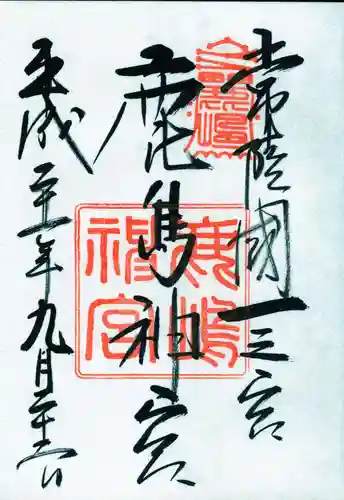 常陸國一之宮
鹿島神宮
平成二十一年九月二十二日
鹿嶋神宮